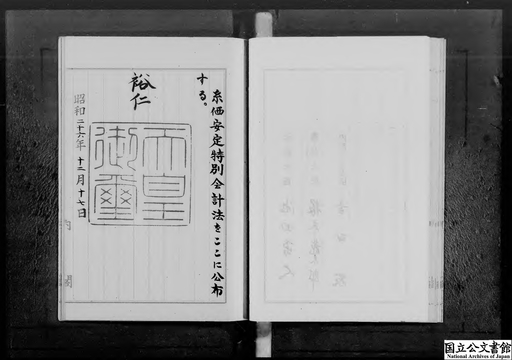 糸価安定特別会計法をここに公布
する。
裕仁
天皇
御璽
昭和二十六年十二月十七日
内閣
国立公文書館
National Archives of Japan